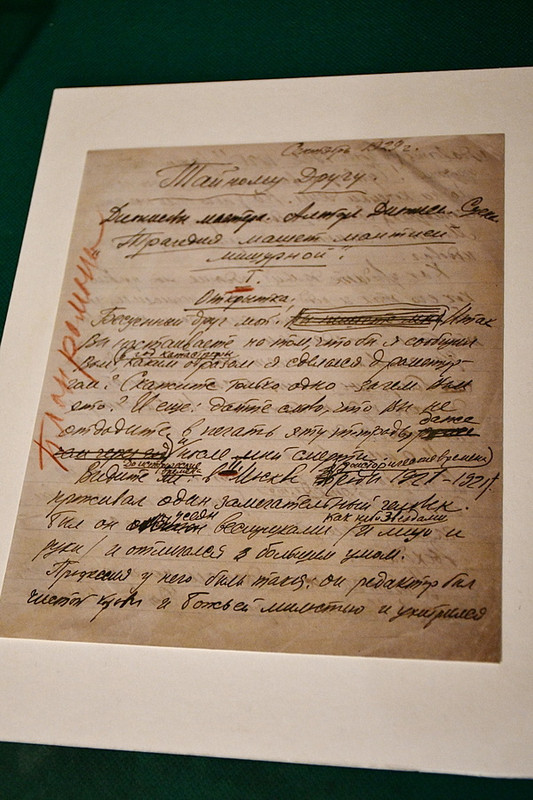 Сентябрь 1929 г.
Тайному Другу.
Дионисовы мастера. Алтарь Диониса. Сцены.
Трагедия машет мантией
мишурной!
I.
Открытка.
Бесценный друг мой! Итак
Вы настаиваете на том, что бы я сообщил
Вам в год катастрофы, каким образом я сделался драматур-
гом? Скажите только одно – зачем Вам
это? И еще: дайте слово, что Вы не
отдадите в печать эту тетрадь даже
и после моей смерти.
Видите ли: в Москве в доисторические времена
1921-192
проживал один замечательный человек.
Был он усеян веснушками как небо звездами (и лицо и
руки) и отличался большим умом.
Профессия у него была такая: он редактор был
чистой крови и Божьей милостью и ухитрился
План романа